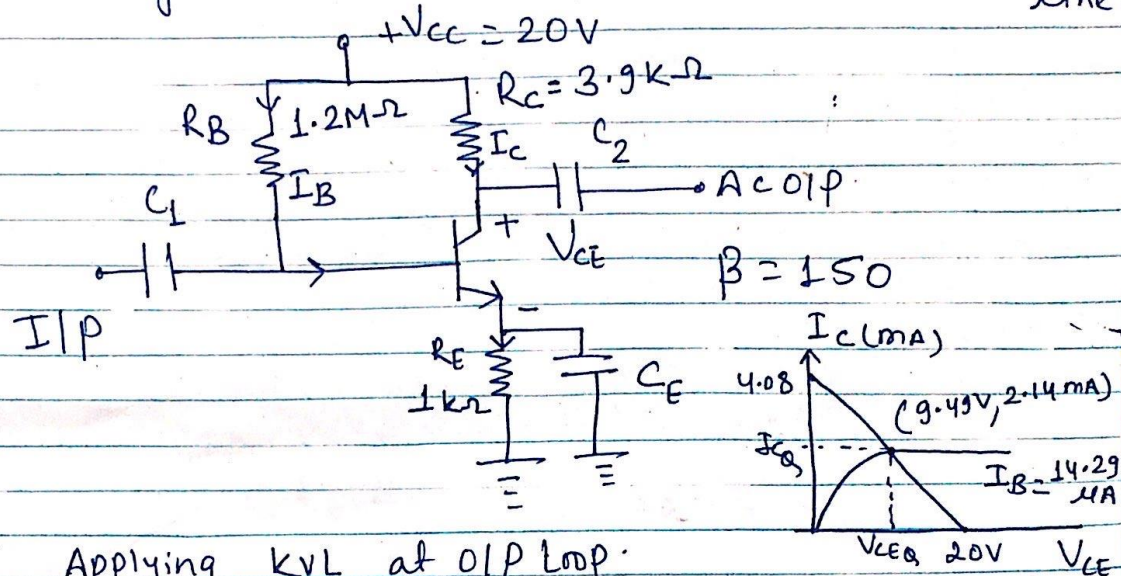 +VCC = 20V
RC = 3.9KΩ
RB
1.2MΩ
IC
C2
IB
AC O/P
C1
+
VCE
β = 150
-
I|P
IC (mA)
RE
1kΩ
CE
4.08
(9.49V, 2.14mA)
ICQ
IB = 14.29
μA
VCEQ
20V
VCE
Applying KVL at O|P Loop.